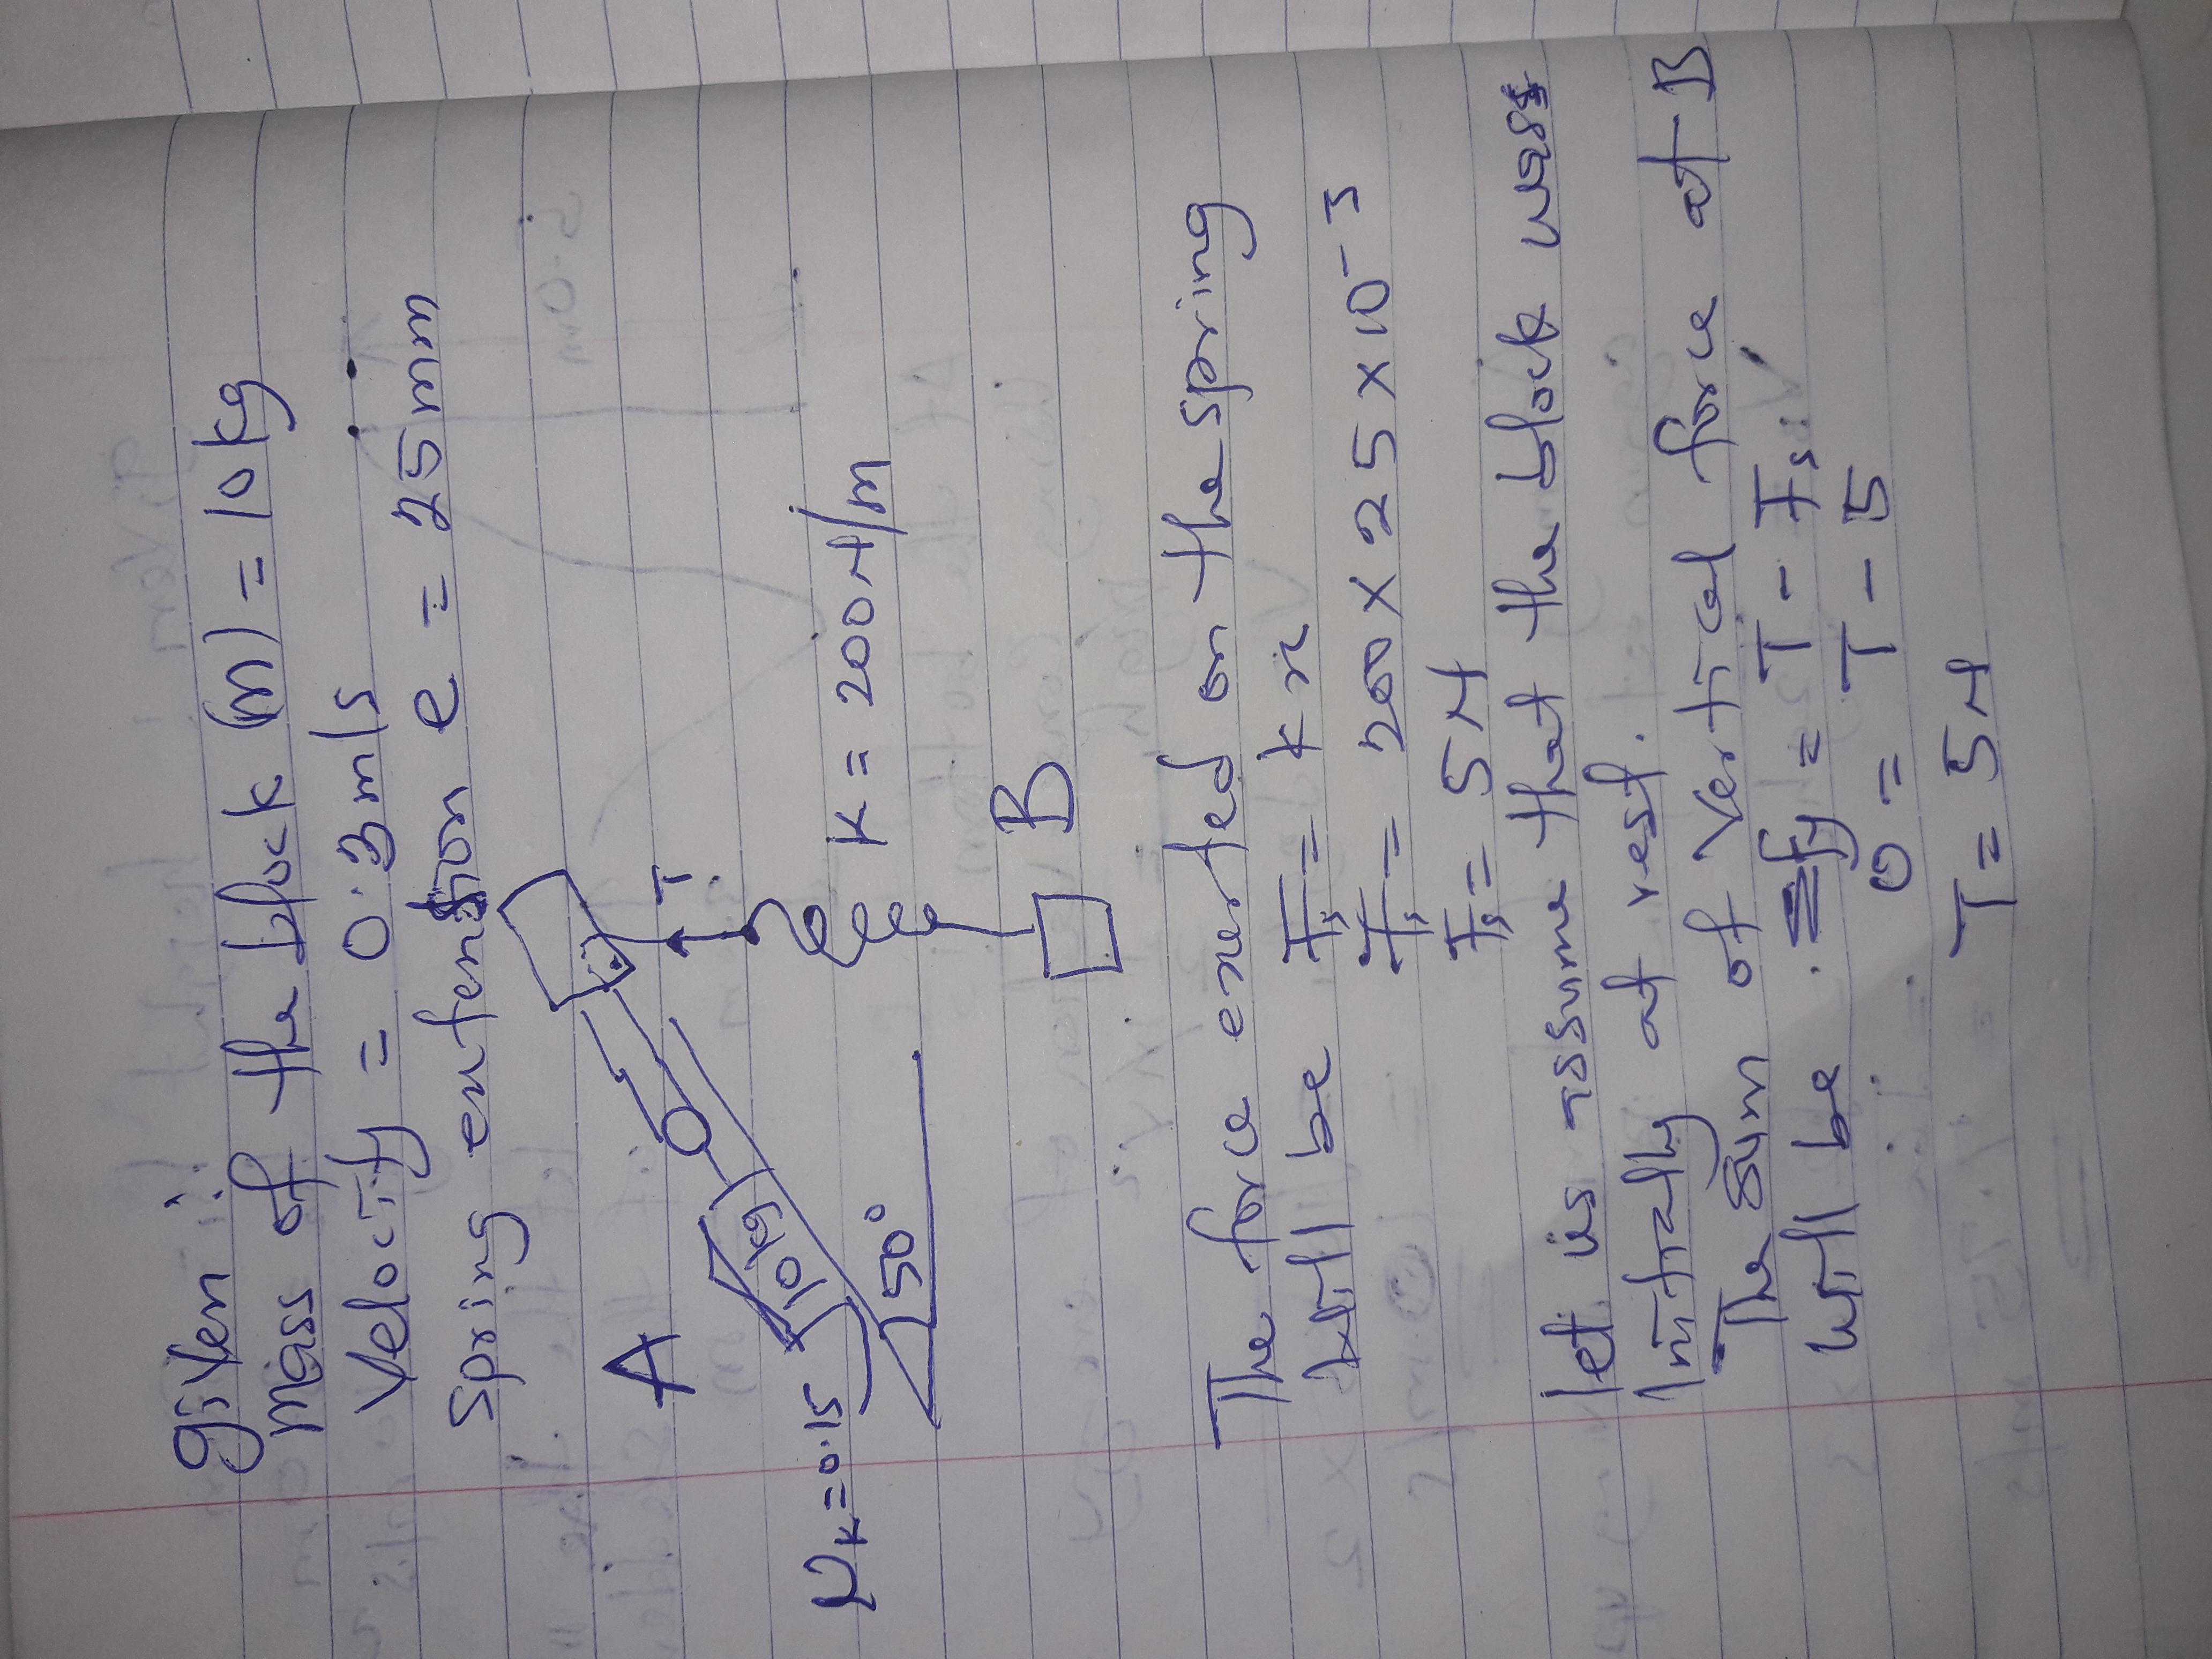 given :
mass of the block (m) = 10kg
Velocity = 0.3m/s
Spring extension e = 25mm
A
10kg
T
μk=0.15
50°
K = 200N/m
B
The force exerted on the spring
will be Fs = kx
Fs = 200 x 25 x 10-3
Fs = 5N
let us assume that the block was
Initially at rest.
The sum of vertical force at B
will be . Σfy = T - Fs
0 = T - 5
T = 5N